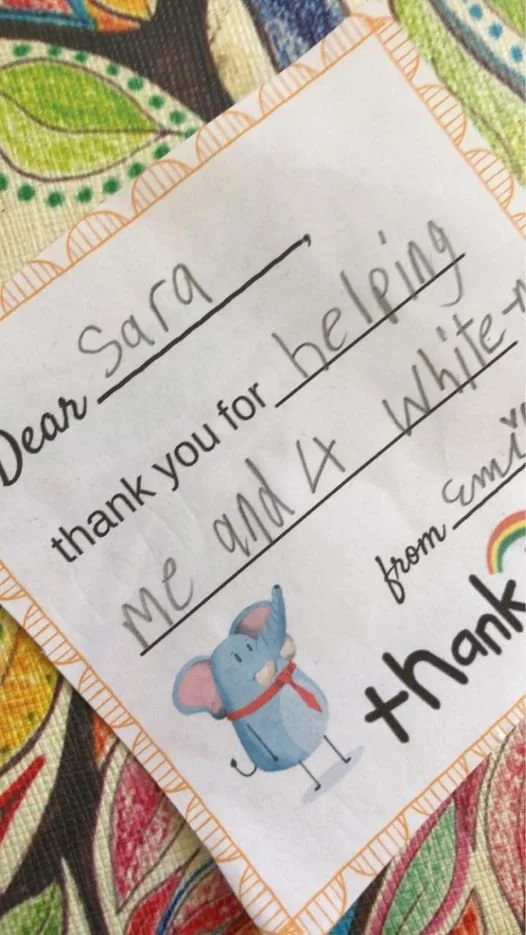 Dear Sara,
thank you for helping
me and 4 White-
from
thank